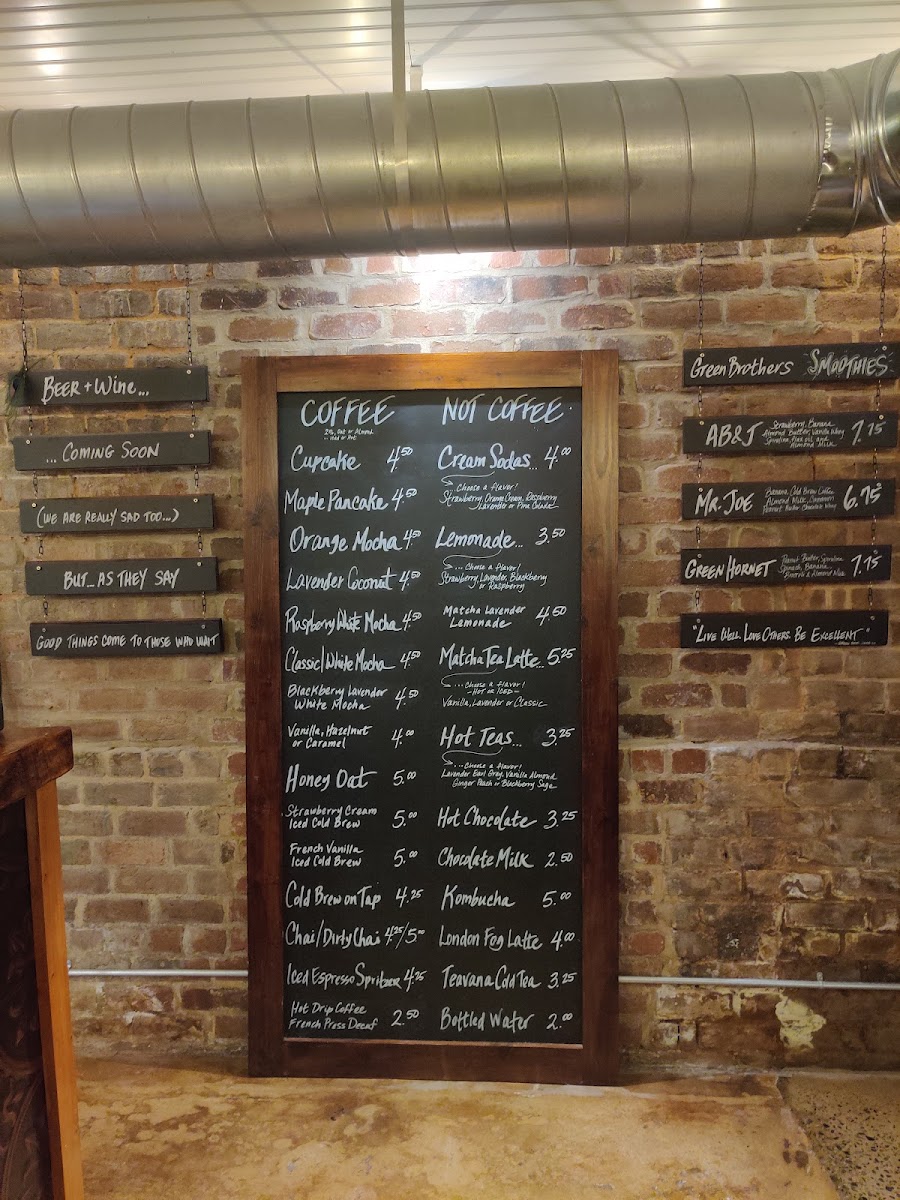 BEER + WINE...
... COMING SOON
(WE ARE REALLY SAD TOO...)
BUT... AS THEY SAY
GOOD THINGS COME TO THOSE WHO WAIT
COFFEE
2%, Oat or Almond
Iced or Hot
Cupcake 4.50
Maple Pancake 4.50
Orange Mocha 4.50
Lavender Coconut 4.50
Raspberry White Mocha 4.50
Classic/White Mocha 4.50
Blackberry Lavender
White Mocha 4.50
Vanilla, Hazelnut
or Caramel 4.00
Honey Oat 5.00
Strawberry Cream
Iced Cold Brew 5.00
French Vanilla
Iced Cold Brew 5.00
Cold Brew on Tap 4.25
Chai/Dirty Chai 4.25/5.00
Iced Espresso Spritzer 4.25
Hot Drip Coffee
French Press Decaf 2.50
NOT COFFEE
Cream Sodas... 4.00
... Choose a flavor!
Strawberry, Orange Cream, Raspberry
Lavender or Pina Colada
Lemonade... 3.50
... Choose a flavor!
Strawberry, Lavender, Blackberry
or Raspberry
Matcha Lavender
Lemonade 4.50
Matcha Tea Latte... 5.25
... Choose a flavor!
- HOT or ICED -
Vanilla, Lavender or Classic
HOT TEAS... 3.25
... Choose a flavor!
Lavender Earl Grey, Vanilla Almond
Ginger Peach or Blackberry Sage
Hot Chocolate 3.25
Chocolate Milk 2.50
Kombucha 5.00
London Fog Latte 4.00
Teavana Cold Tea 3.25
Bottled Water 2.00
Green Brothers SMOOTHIES
AB&J Strawberry, Banana
Almond Butter, Vanilla Whey
Spirulina, Flax oil, and
Almond Milk 7.75
MR. JOE Banana, Cold Brew Coffee
Almond Milk, Cinnamon
Peanut Butter Chocolate Whey 6.75
GREEN HORNET Peanut Butter, Spirulina
Spinach, Banana
& Almond Milk 7.75
"LIVE WELL. LOVE OTHERS. BE EXCELLENT"